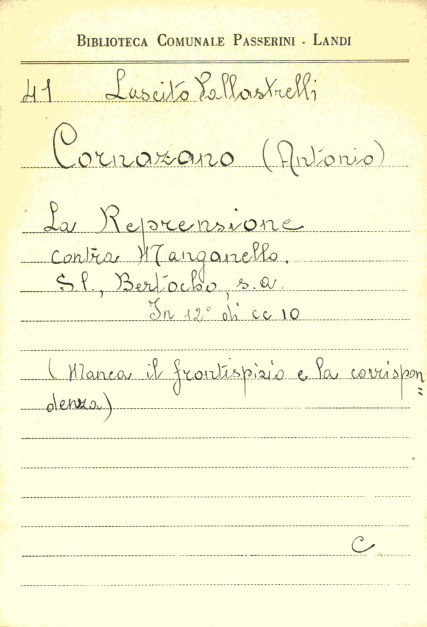 BIBLIOTECA COMUNALE PASSERINI - LANDI
41 Lascito Pallastrelli
Cornazano (Antonio)
La Reprensione
contra Manganello.
S.l., Bertocho, s.a.
In 12° di cc 10
(Manca il frontispizio e la corrispon=
denza)
C